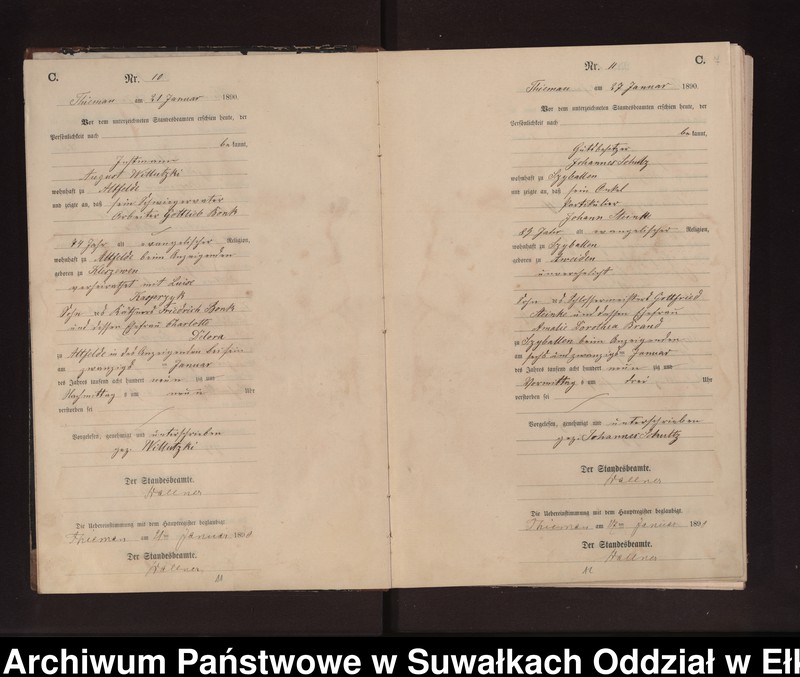 C.
Nr. 10
Thieman am 21 Januar 1890
Vor dem unterzeichneten Standesbeamten erschien heute, der
Persönlichkeit nach
bekannt,
Instmann
August Willutzki
wohnhaft zu Altfelde
und zeigte an, daß sein Schwiegervater
Arbeiter Gottlieb Bonk
Jahr, a evangelischer Religion,
wohnhaft zu Altfelde beim Anzeigenden
geboren zu
verheirathet mit Luise
Kasprzyk
Sohn des Friedrich Bonk
und dessen Ehefrau Charlotte
zu Altfelde in des Anzeigenden Beisein
am zwanzigsten Januar
des Jahres tausend acht hundert neunzig und
Nachmittag s um neun Uhr
verstorben sei
Vorgelesen, genehmigt und unterschrieben
gez. Willutzki
Der Standesbeamte.
Die Uebereinstimmung mit dem Hauptregister beglaubigt.
Thieman am 21ten Januar 1890
Der Standesbeamte.
C.
Nr. 11
Thieman am 27 Januar 1890
Vor dem unterzeichneten Standesbeamten erschien heute, der
Persönlichkeit nach
bekannt,
Gutsbesitzer
Johannes Schultz
wohnhaft zu Szyballen
und zeigte an, daß sein Onkel
Partikulier
Johann Steinke
Jahr, a evangelischer Religion,
wohnhaft zu Szyballen
geboren zu
unverehelicht
Sohn des Schlossermeisters Gottfried
Steinke und dessen Ehefrau
Amalie Dorothea Brand
zu Szyballen beim Anzeigenden
am sechs und zwanzigsten Januar
des Jahres tausend acht hundert neunzig und
Vormittag s um drei Uhr
verstorben sei
Vorgelesen, genehmigt und unterschrieben
gez. Johannes Schultz
Der Standesbeamte.
Die Uebereinstimmung mit dem Hauptregister beglaubigt.
Thieman am 27ten Januar 1890
Der Standesbeamte.
Archiwum Państwowe w Suwałkach Oddział w Ełk